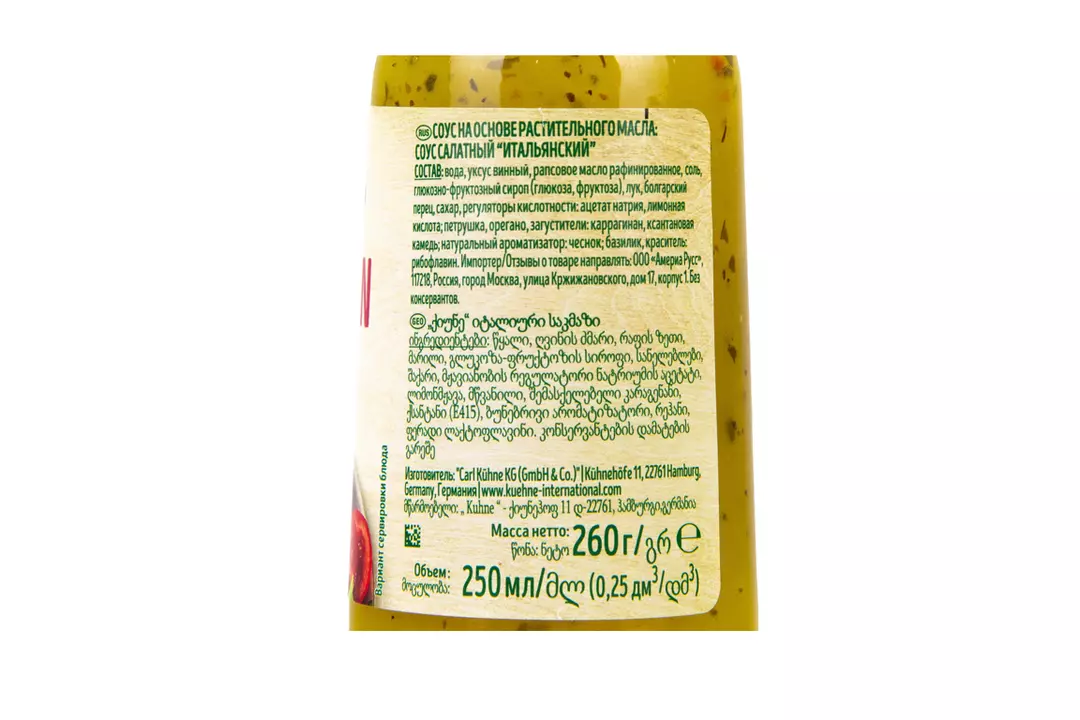 RUS СОУС НА ОСНОВЕ РАСТИТЕЛЬНОГО МАСЛА:
СОУС САЛАТНЫЙ "ИТАЛЬЯНСКИЙ"
СОСТАВ: вода, уксус винный, рапсовое масло рафинированное, соль,
глюкозно-фруктозный сироп (глюкоза, фруктоза), лук, болгарский
перец, сахар, регуляторы кислотности: ацетат натрия, лимонная
кислота; петрушка, орегано, загустители: каррагинан, ксантановая
камедь; натуральный ароматизатор: чеснок; базилик, краситель:
рибофлавин. Импортер/Отзывы о товаре направлять: ООО «Америа Русс»,
117218, Россия, город Москва, улица Кржижановского, дом 17, корпус 1. Без
консервантов.
GEO „ქიუნე“ იტალიური საკმაზი
ინგრედიენტები: წყალი, ღვინის ძმარი, რაფის ზეთი,
მარილი, გლუკოზა-ფრუქტოზის სიროფი, სანელებლები,
შაქარი, მჟავიანობის რეგულატორი ნატრიუმის აცეტატი,
ლიმონმჟავა, მწვანილი, შემასქელებელი კარაგენანი,
ქსანტანი (E415), ბუნებრივი არომატიზატორი, რეჰანი,
ფერადი ლაქტოფლავინი. კონსერვანტების დამატების
გარეშე
Изготовитель: "Carl Kühne KG (GmbH & Co.)" | Kühnehöfe 11, 22761 Hamburg,
Germany, Германия | www.kuehne-international.com
მწარმოებელი: „ Kuhne “ - ქიუნეჰოფ 11 დ-22761, ჰამბურგი,გერმანია
Масса нетто:
წონა: ნეტო 260 г/გრ ℮
Объем:
მოცულობა: 250 мл/მლ (0,25 дм³/დმ³)
Вариант сервировки блюда
N